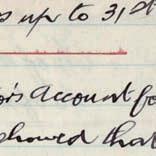 up to 31
account fo
showed that